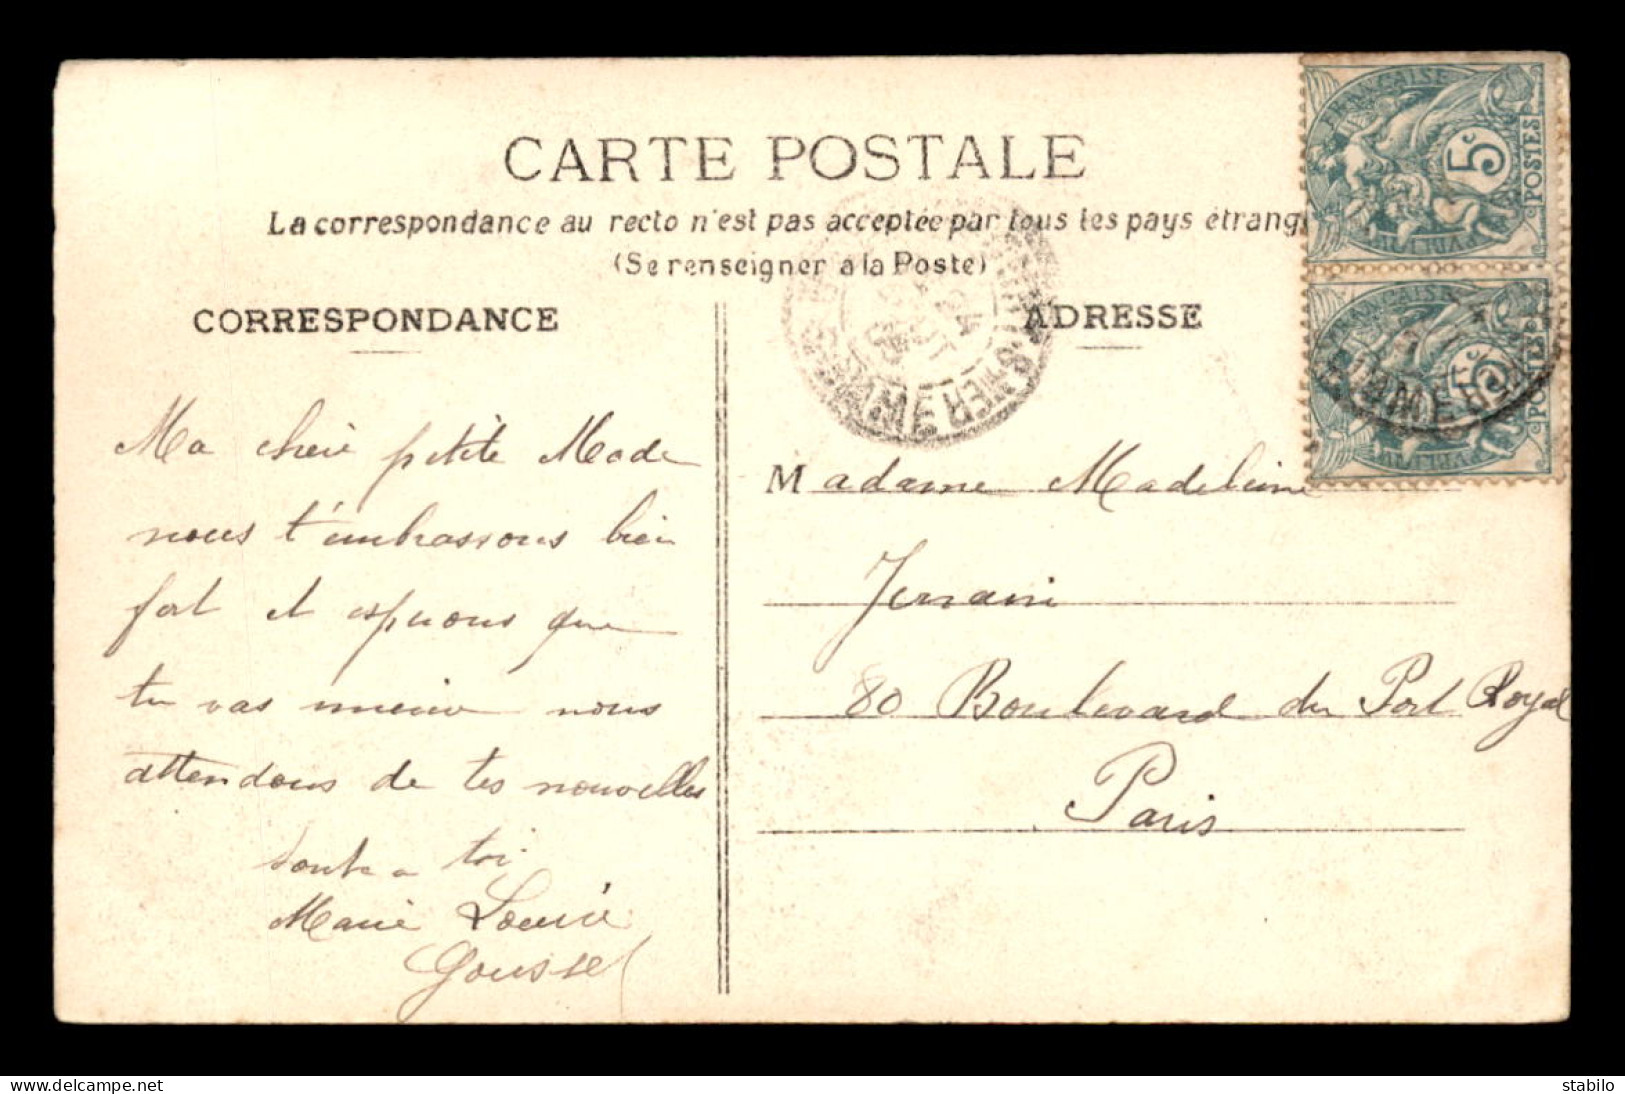 CARTE POSTALE
La correspondance au recto n'est pas acceptée par tous les pays étrang
(Se renseigner à la Poste)
CORRESPONDANCE
Ma cherie petite Made
nous t'embrassons bien
fort et esperons que
tu vas mieux nous
attendons de tes nouvelles
toi
Marie Louise
Goussel
ADRESSE
Madame Madeleine
80 Boulevard du Port Royal
Paris
FRANÇAISE
5c
POSTES
FRANÇAISE
5c
POSTES
delcampe.net
stabilo